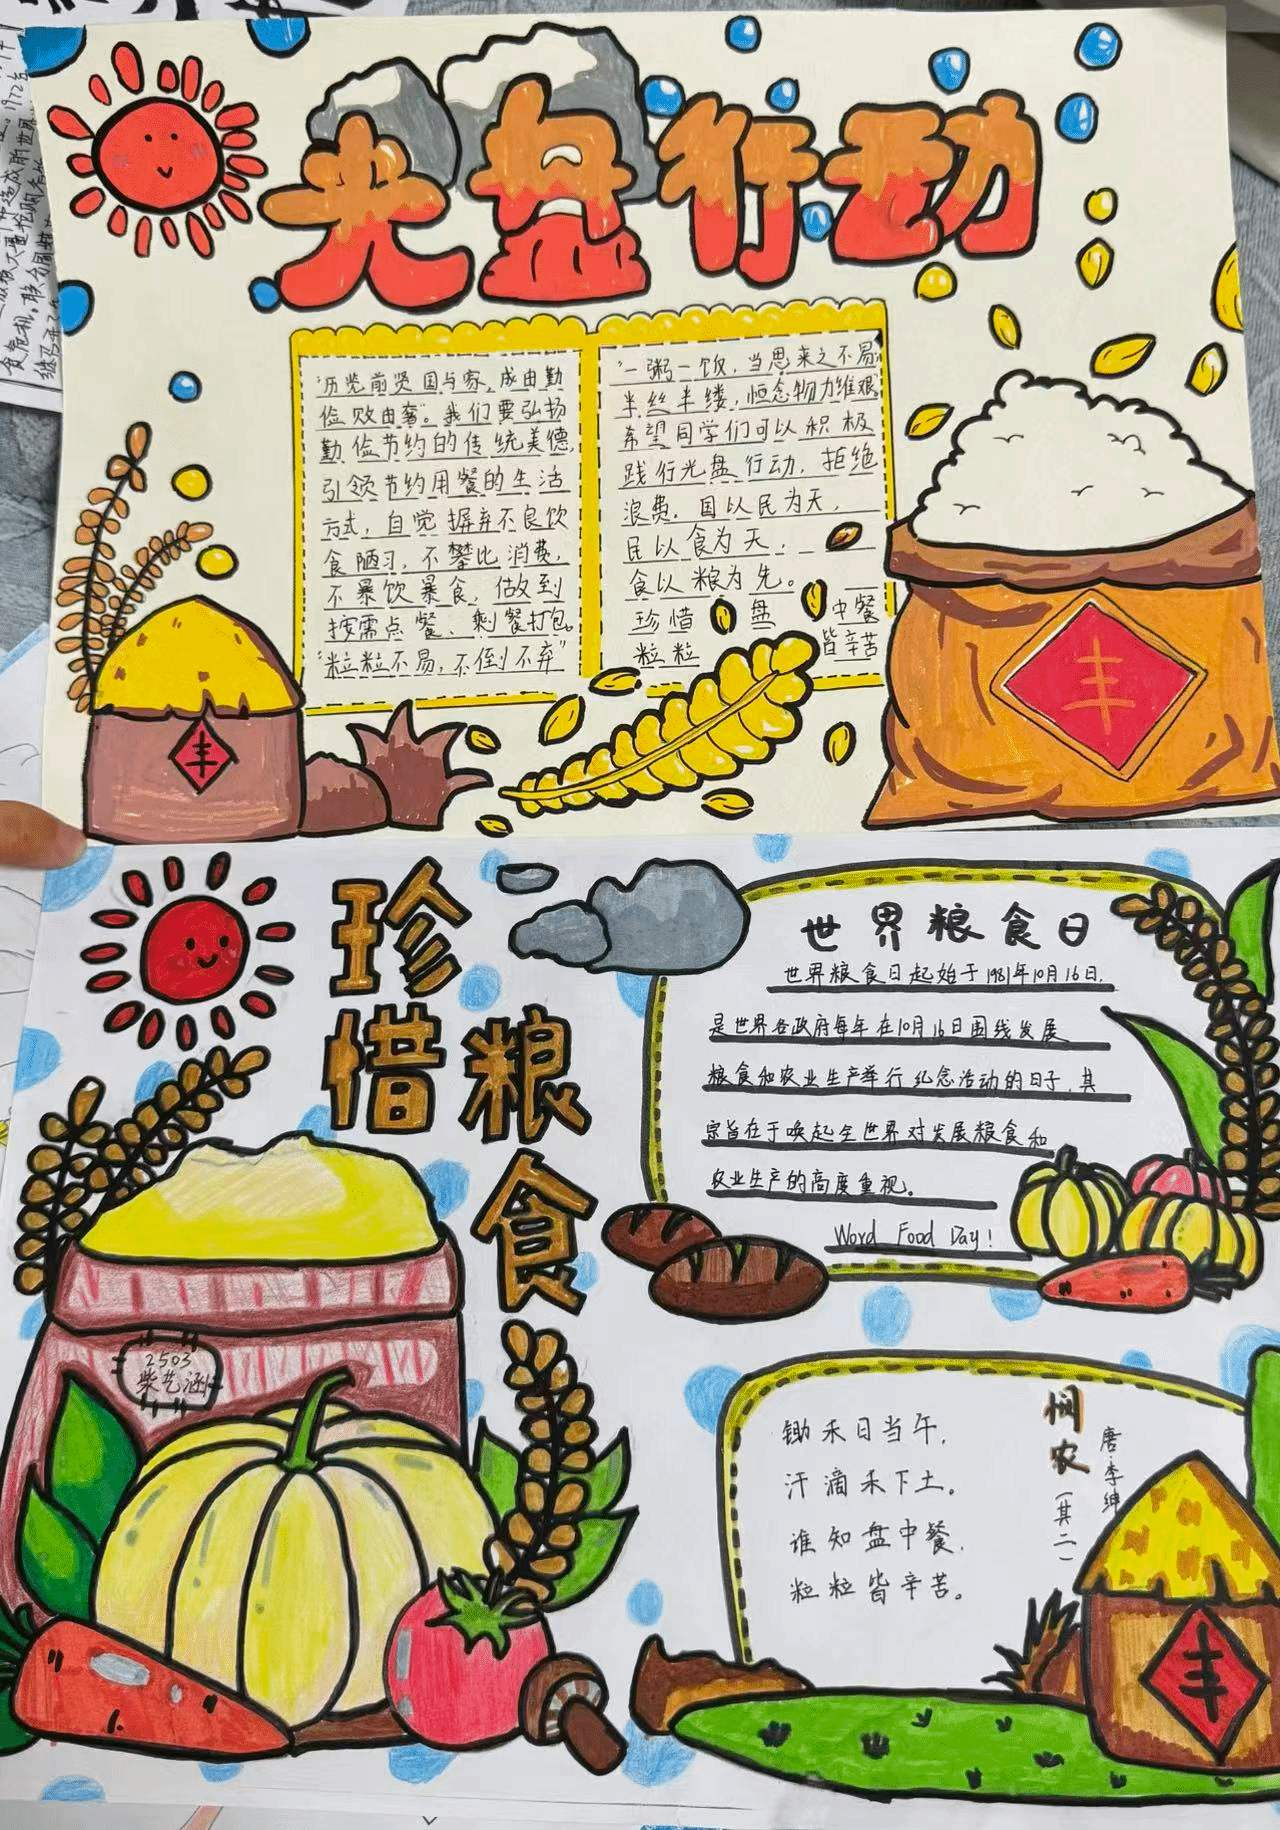 光盘行动
"历览前贤国与家,成由勤
俭败由奢"。我们要弘扬
勤俭节约的传统美德,
引领节约用餐的生活
方式,自觉摒弃不良饮
食陋习,不攀比消费,
不暴饮暴食,做到
按需点餐、剩餐打包。
"粒粒不易,不倒不弃"
"一粥一饭,当思来之不易;
半丝半缕,恒念物力维艰
希望同学们可以积极
践行光盘行动,拒绝
浪费,国以民为天,
民以食为天,
食以粮为先。
珍惜 盘 中餐
粒粒 皆辛苦
丰
丰
珍惜
粮食
世界粮食日
世界粮食日起始于1981年10月16日,
是世界各政府每年在10月16日围线发展
粮食和农业生产举行纪念活动的日子,其
宗旨在于唤起全世界对发展粮食和
农业生产的高度重视。
Word Food Day!
2503
柴艺涵
悯农(其二)
唐·李绅
锄禾日当午,
汗滴禾下土。
谁知盘中餐,
粒粒皆辛苦。
丰